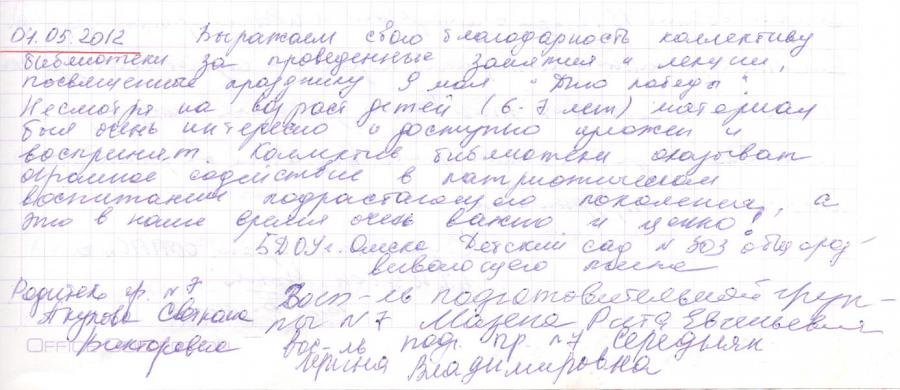 07.05.2012 Выражаем свою благодарность коллективу
библиотеки за проведенные занятия и лекции,
посвященные празднику 9 мая "Дню победы".
Несмотря на возраст детей (6-7 лет) материал
был очень интересно и доступно изложен и
воспринят. Коллектив библиотеки оказывает
огромное содействие в патриотическом
воспитании подрастающего поколения, а
это в наше время очень важно и ценно!
БДОУ г. Омска Детский сад N 303 общераз-
вивающего
Родитель гр. N 7 Восп-ль подготовительной груп-
Акулова Светлана пы N 7 Рита Евгеньевна
Викторовна Вос-ль подг. гр. N 7 Середняк
Ирина Владимировна